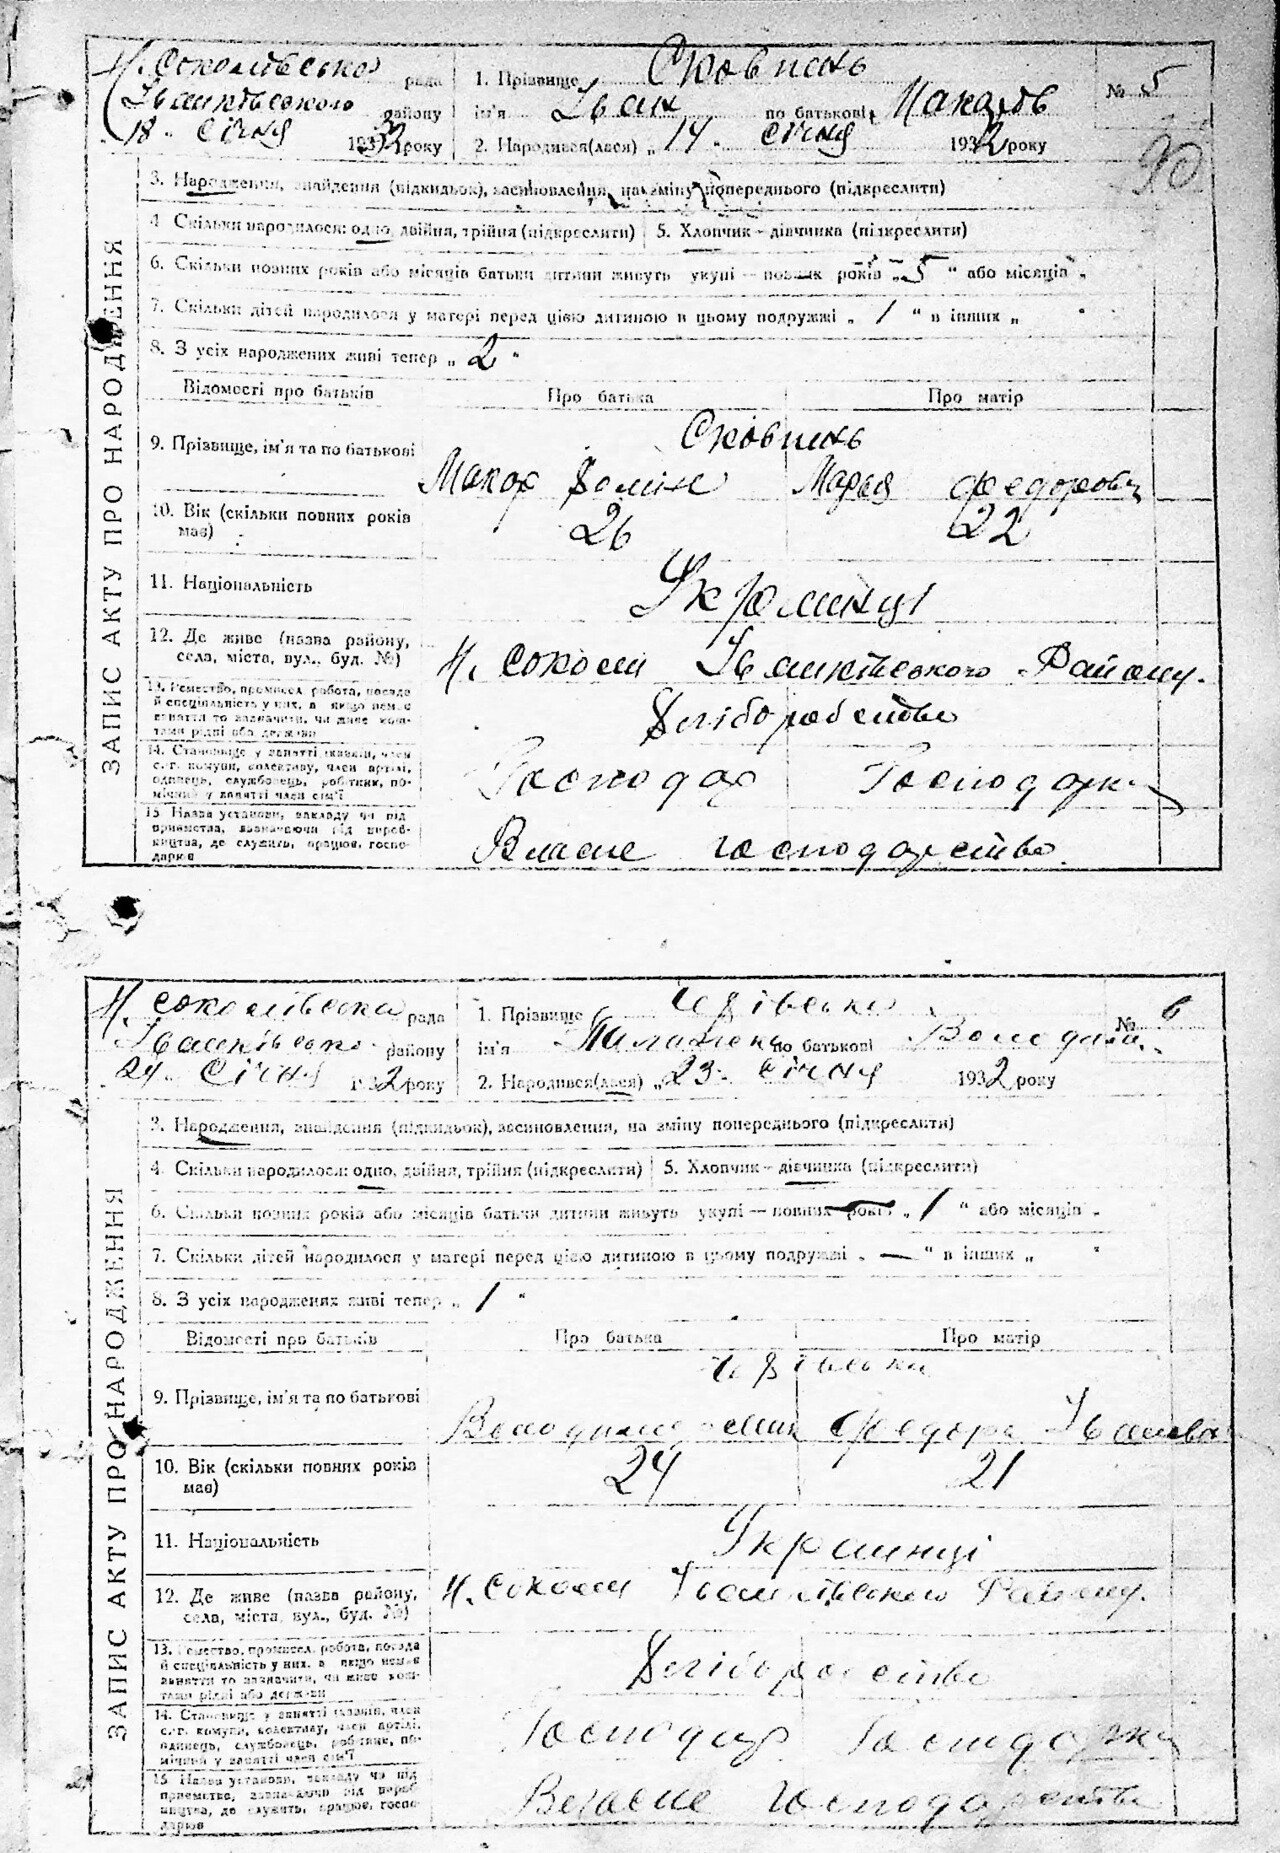 Н. Соколівська рада
Іванківського району
18 січня 1932 року
1. Прізвище Сковпинь
ім'я Іван по батькові Макарів
2. Народився(лася) „ 14 " січня 1932 року
№ 5
90
ЗАПИС АКТУ ПРО НАРОДЖЕННЯ
3. Народження, знайдення (підкидьок), засиновлення, на зміну попереднього (підкреслити)
4 Скільки народилося: одно, двійня, трійня (підкреслити) 5. Хлопчик – дівчинка (підкреслити)
6. Скільки повних років або місяців батьки дитини живуть укупі – повних років „ 5 " або місяців „
7. Скільки дітей народилося у матері перед цією дитиною в цьому подружжі „ 1 " в інших „ "
8. З усіх народжених живі тепер „ 2 "
Відомості про батьків Про батька Про матір
9. Прізвище, ім'я та по батькові Сковпинь
Макар Марья Федоровн
10. Вік (скільки повних років має) 26 22
11. Національність Українці
12. Де живе (назва району, села, міста, вул., буд. №) Н. Соколи Іванківського Району.
13. Ремество, промисел, робота, посада й спеціяльність у них, а якщо немає заняття то зазначити, чи живе коштами рідні або держави Хліборобство
14. Становище у занятті хазяїн, член с.-г. комуни, колективу, член артілі, одинець, службовець, робітник, помічний у занятті член сім'ї Господар Господарка
15 Назва установи, закладу чи підприємства, зазначаючи рід виробництва, де служить, працює, господарює Власне господарство
Н. Соколівська рада
Іванківсько району
24 Січня 1932 року
1. Прізвище
ім'я по батькові Володим.
2. Народився(лася) „ 23 " січня 1932 року
№ 6
ЗАПИС АКТУ ПРО НАРОДЖЕННЯ
3. Народження, знайдення (підкидьок), засиновлення, на зміну попереднього (підкреслити)
4. Скільки народилося: одно, двійня, трійня (підкреслити) 5. Хлопчик – дівчинка (підкреслити)
6. Скільки повних років або місяців батьки дитини живуть укупі – повних років „ 1 " або місяців „
7. Скільки дітей народилося у матері перед цією дитиною в цьому подружжі „ — " в інших „ "
8. З усіх народжених живі тепер „ 1 "
Відомості про батьків Про батька Про матір
9. Прізвище, ім'я та по батькові
Володимир Федора Іванова
10. Вік (скільки повних років має) 24 21
11. Національність Українці
12. Де живе (назва району, села, міста, вул., буд. №) Н. Соколи Іванківського Району.
13. Ремество, промисел, робота, посада й спеціяльність у них, а якщо немає заняття то зазначити, чи живе коштами рідні або держави Хліборобство
14. Становище у занятті хазяїн, член с.-г. комуни, колективу, член артілі, одинець, службовець, робітник, помічний у занятті член сім'ї Господар Господарка
15 Назва установи, закладу чи підприємства, зазначаючи рід виробництва, де служить, працює, господарює Власне господарство